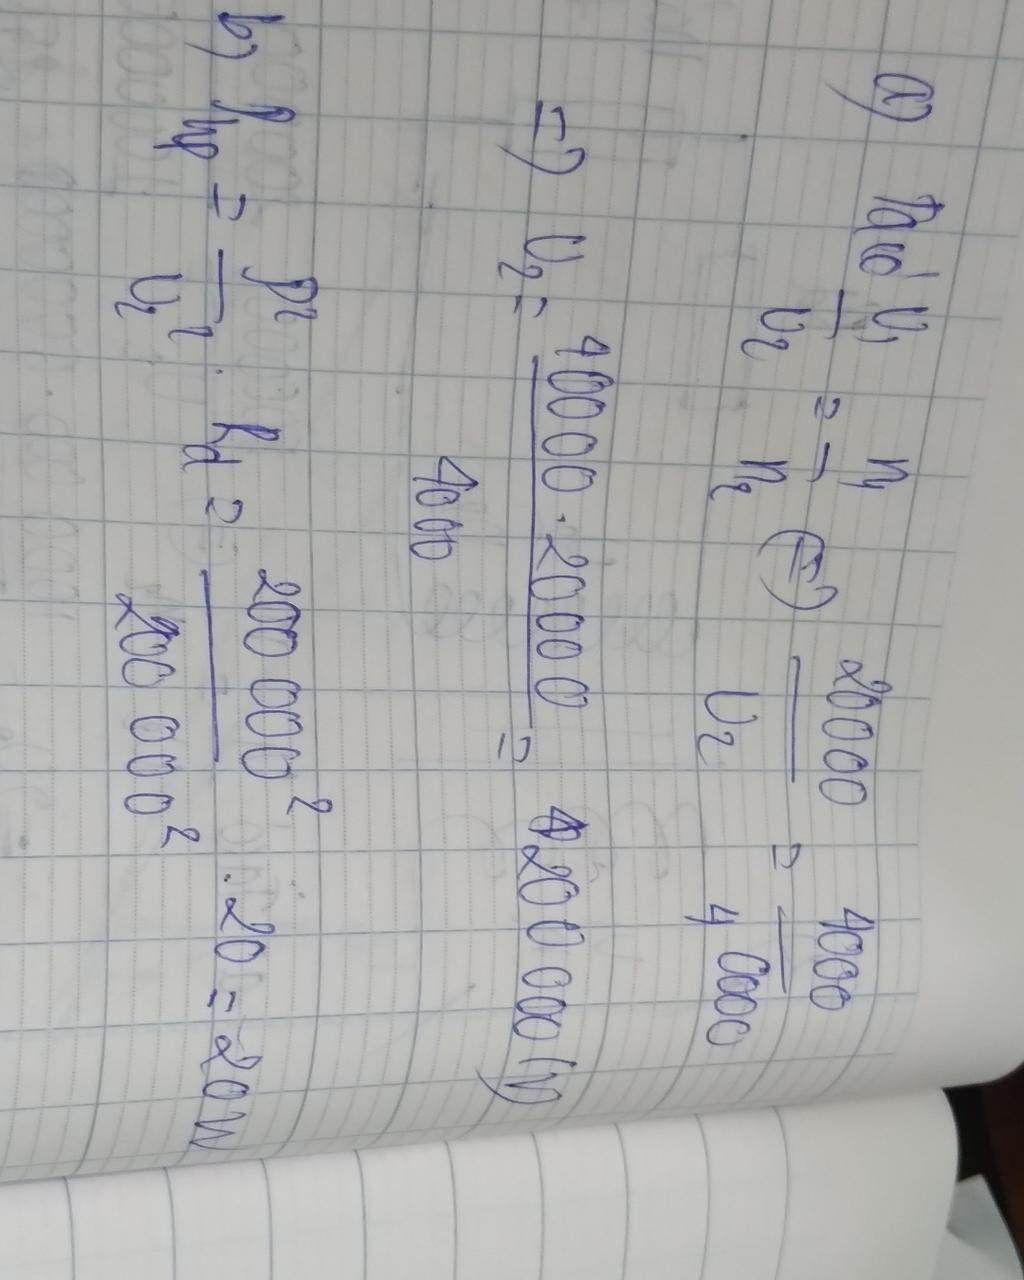 a) Ta có U₁/U₂ = n₁/n₂ (=) 20000/U₂ = 4000/40000
=) U₂ = 40000.20000/4000 = 200 000 (V)
b) Php = P²/U₂² . Rd = 200 000²/200 000² . 20 = 20W